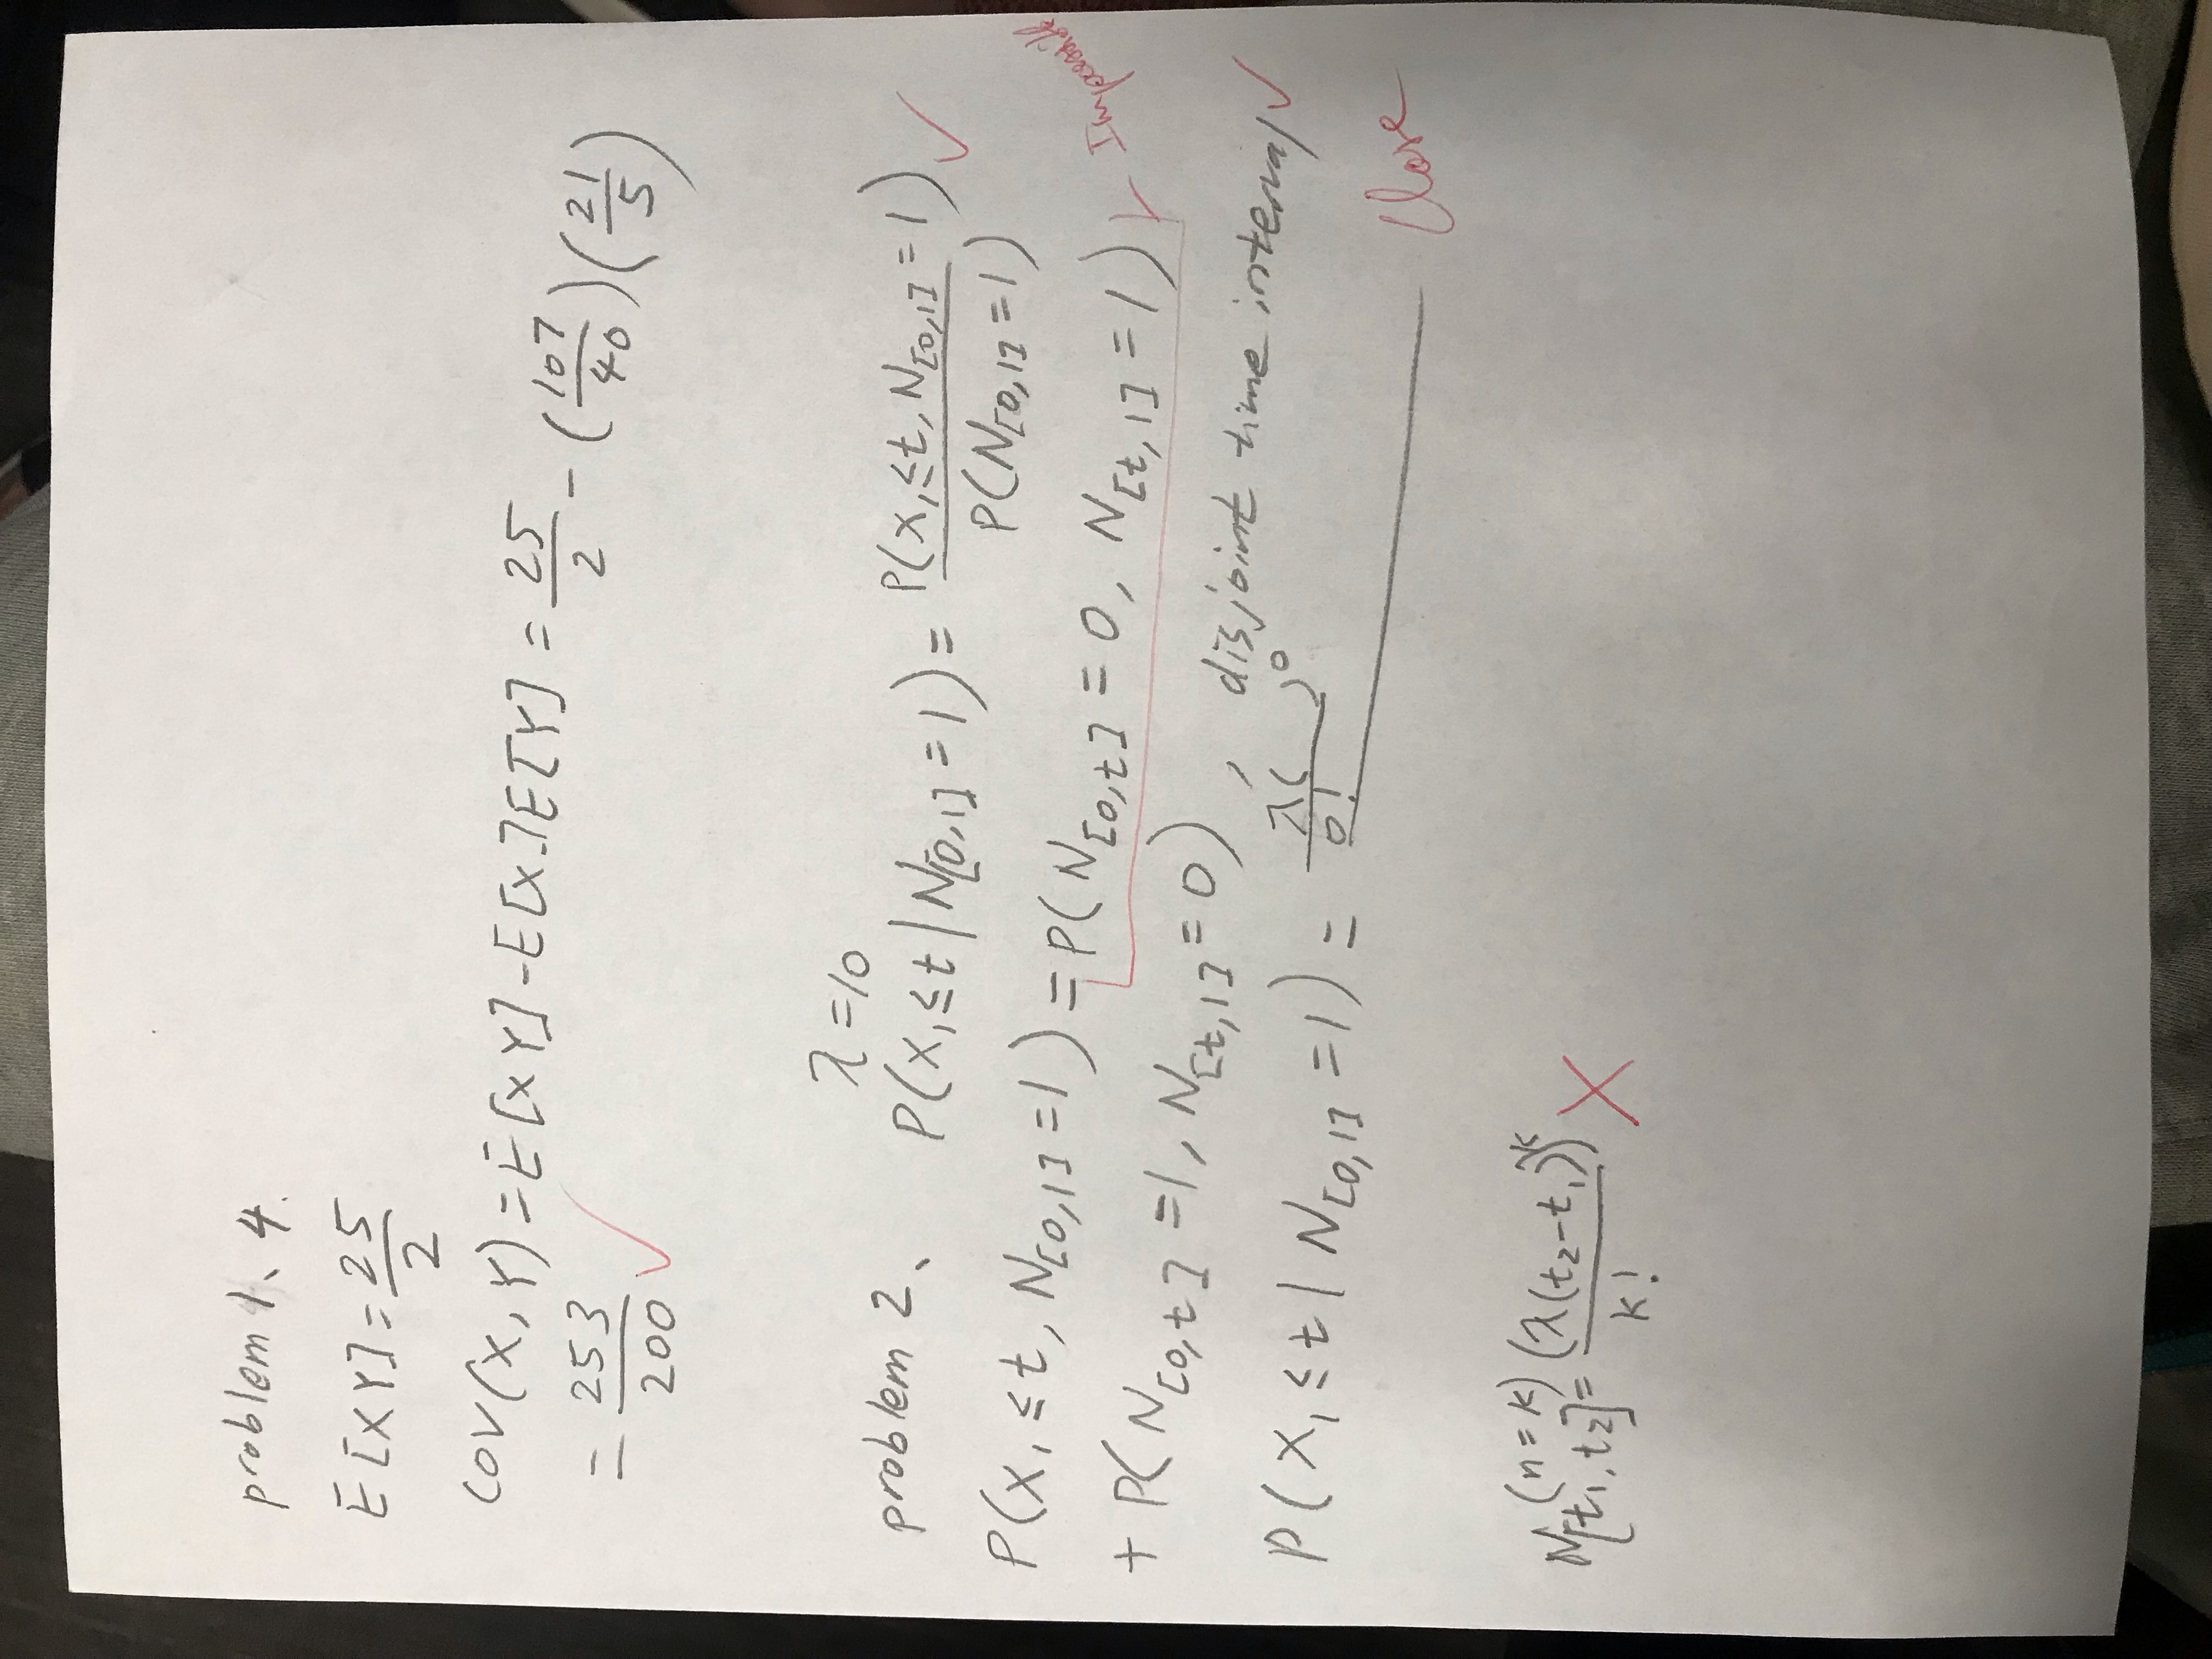 problem 1、4.
E[XY]=25/2
cov(X,Y)=E[XY]-E[X]E[Y]=25/2-(107/40)(21/5)
=253/200 ✓
λ=10
problem 2、 P(X₁≤t|N[0,1]=1)=P(X₁≤t,N[0,1]=1)/P(N[0,1]=1) ✓
P(X₁≤t,N[0,1]=1)=P(N[0,t]=0,N[t,1]=1) Impossible
+P(N[0,t]=1,N[t,1]=0), disjoint time interval ✓
P(X₁≤t|N[0,1]=1)=λ( )⁰/0!
Close
N[t₁,t₂](n=k)=(λ(t₂-t₁))ᵏ/k! X